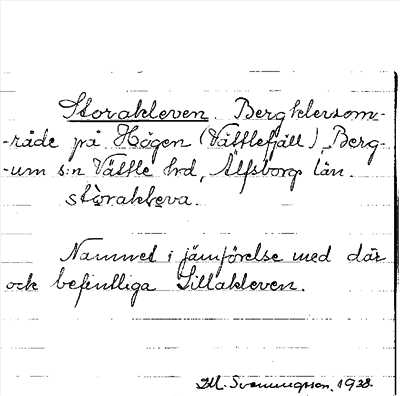 Storakleven. Bergklersom-
-råde på Högen (Vättlefjäll), Berg-
-um s:n Vättle hrd, Älfsborgs län.
stòrakleva.
Namnet i jämförelse med där
ock befintliga Lillakleven.
Svenningsson, 1928.